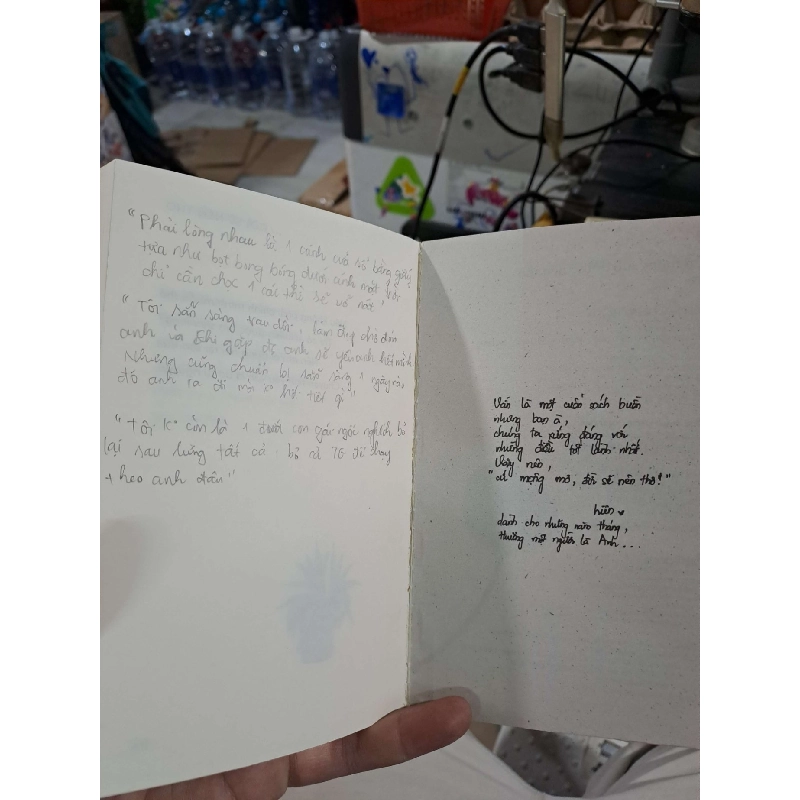 "Phải lòng nhau là 1 cánh cửa sổ bằng giấy
tựa như bọt bong bóng dưới ánh mặt trời
chỉ cần chọc 1 cái thì sẽ vỡ nát"
"Tôi sẵn sàng trau dồi,
anh và khi gặp anh sẽ yêu anh hết mình
Nhưng cũng chuẩn bị sẵn sàng 1 ngày nào
đó anh ra đi mà k hối tiếc gì"
"Tôi K còn là 1 đứa con gái ngốc nghếch bỏ
lại sau lưng tất cả để chạy
theo anh đâu"
Vẫn là một cuốn sách buồn
nhưng bạn à,
chúng ta xứng đáng với
những điều tốt lành nhất.
Vậy nên,
"cứ mộng mơ, đời sẽ nên thơ!"
hiên
dành cho những năm tháng,
thương một người là Anh...